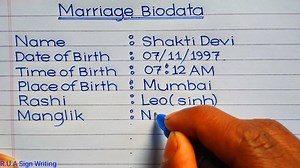 Marriage Biodata
Name : Shakti Devi
Date of Birth : 07/11/1997
Time of Birth : 07:12 AM
Place of Birth : Mumbai
Rashi : Leo(sinh)
Manglik : N
R.U.A Sign Writing